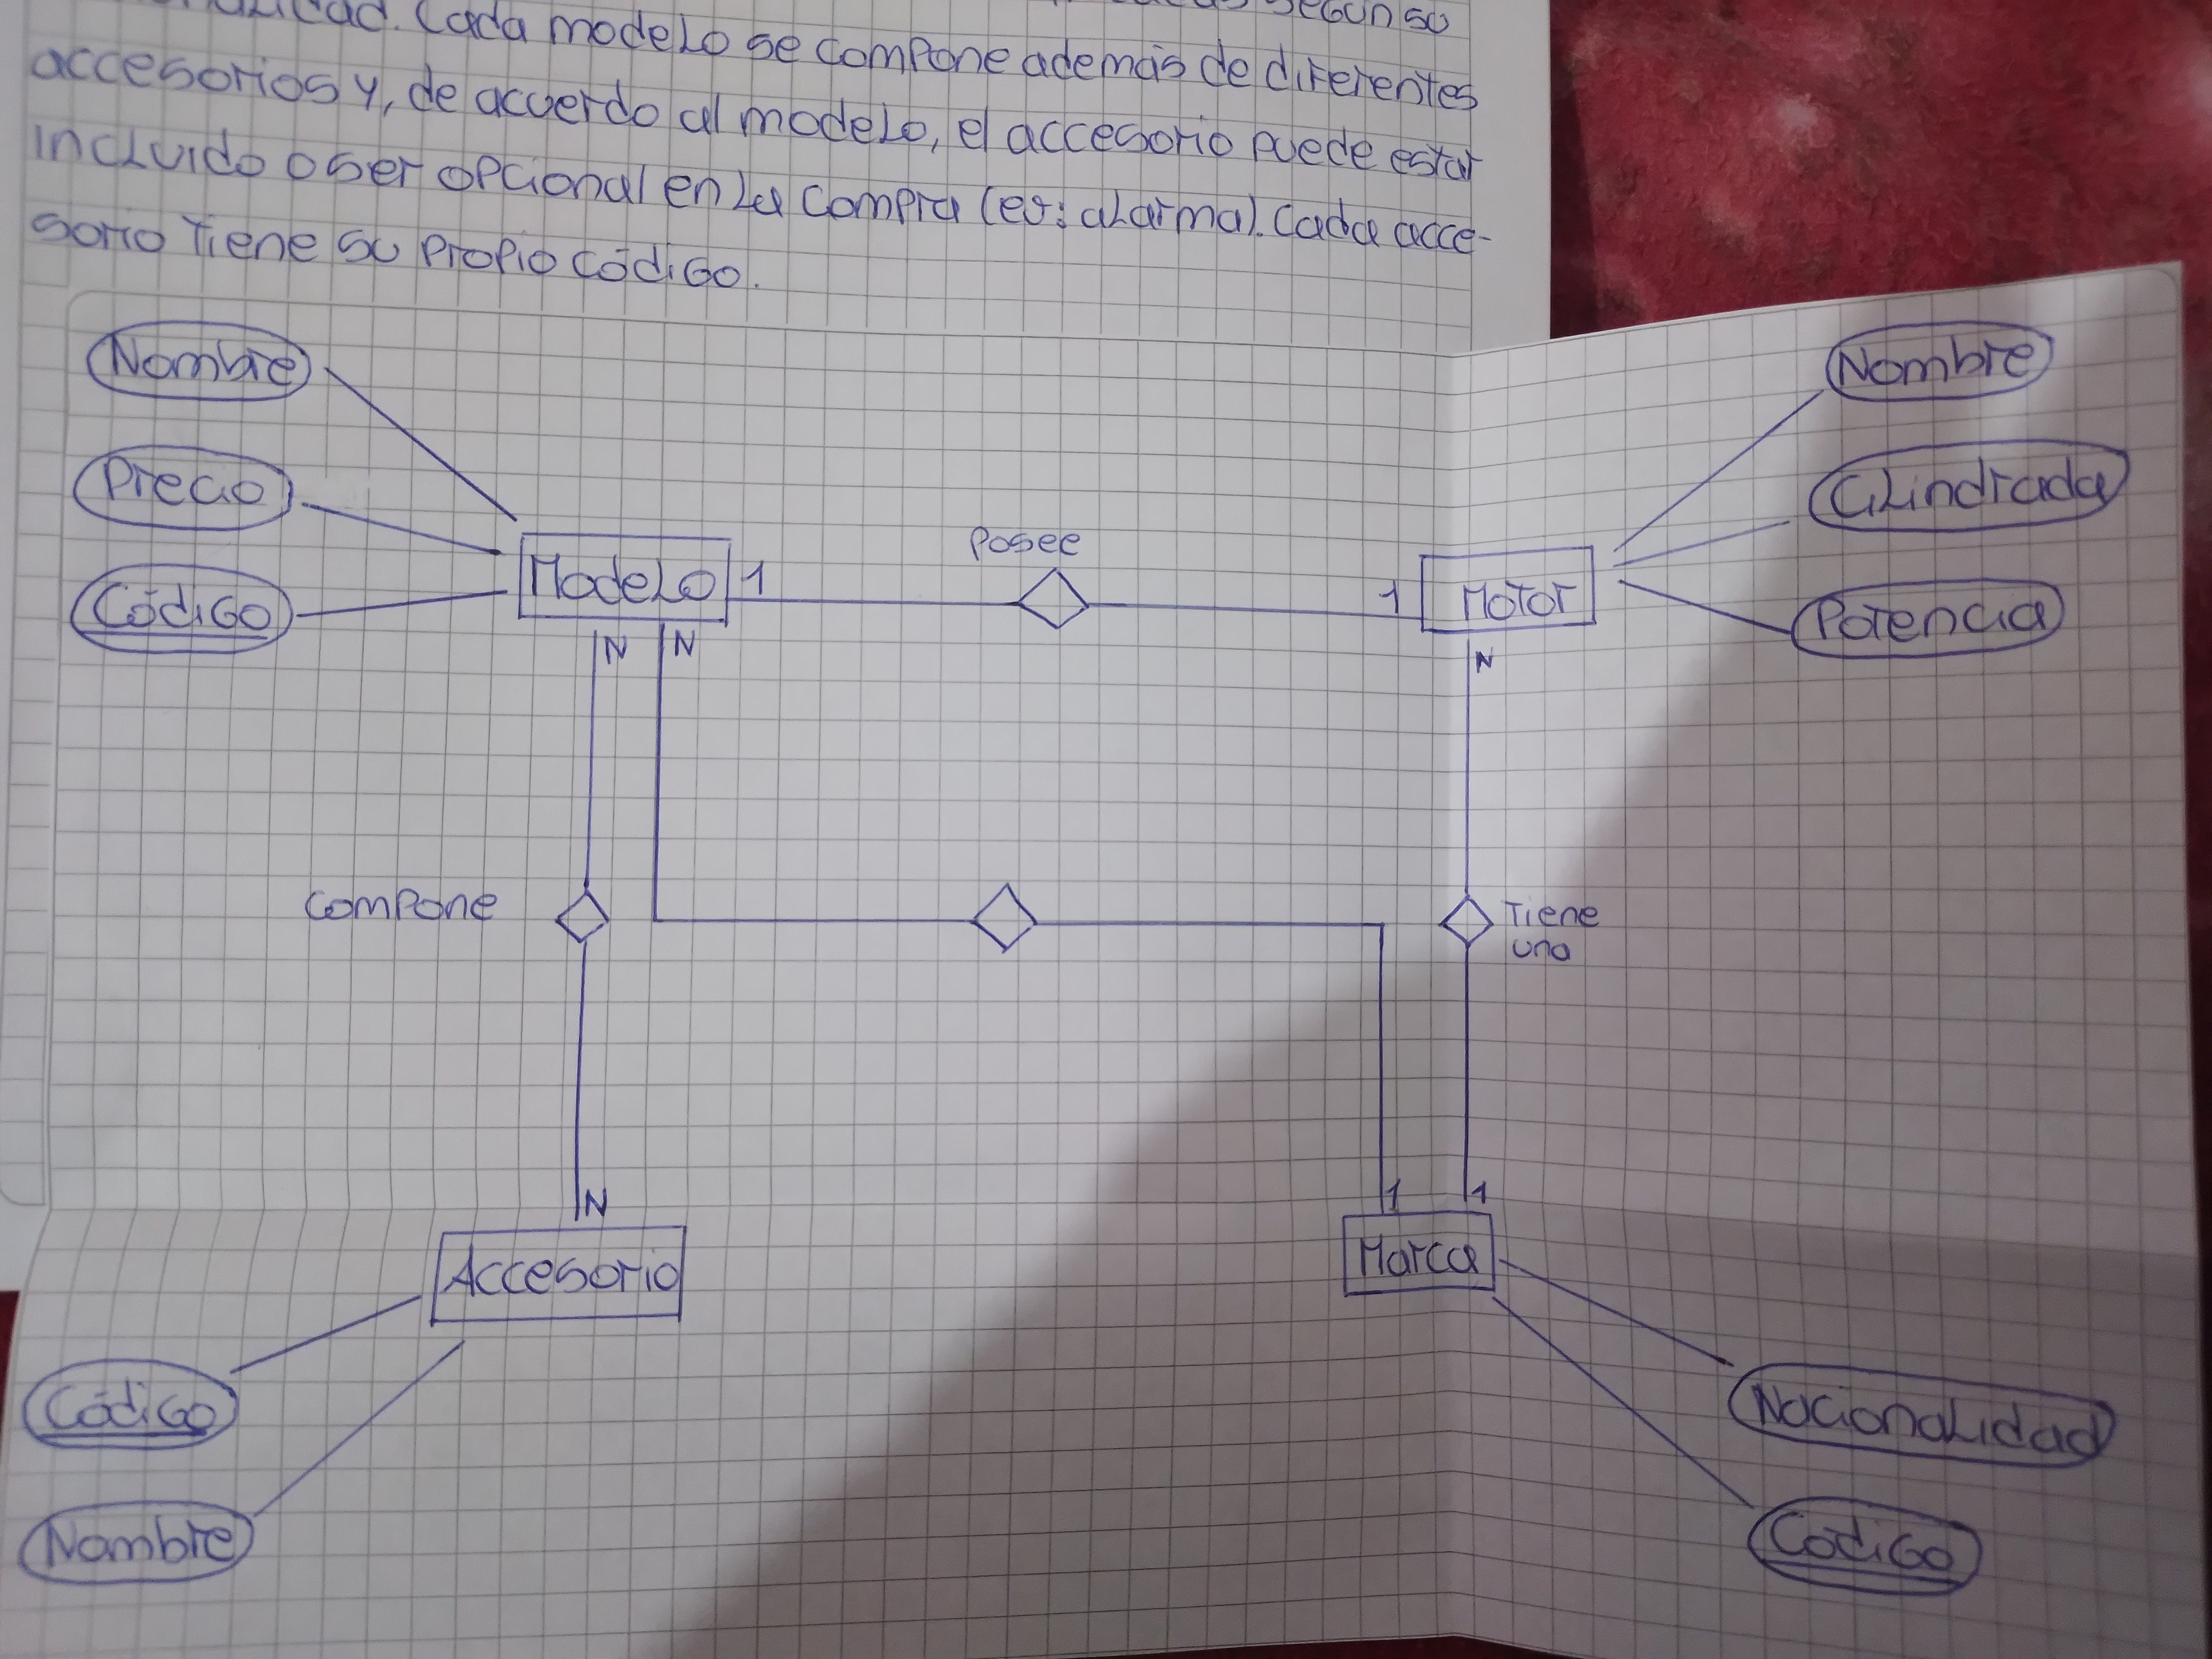 Cada modelo se compone además de diferentes
accesorios y, de acuerdo al modelo, el accesorio puede estar
incluido o ser opcional en la compra (ej: alarma). Cada acce-
sorio tiene su propio código.
Nombre
Nombre
Precio
Cilindrada
Posee
Modelo 1
1 Motor
Código
Potencia
N N
N
Compone
Tiene
una
N
1 1
Accesorio
Marca
Código
Nacionalidad
Nombre
Código